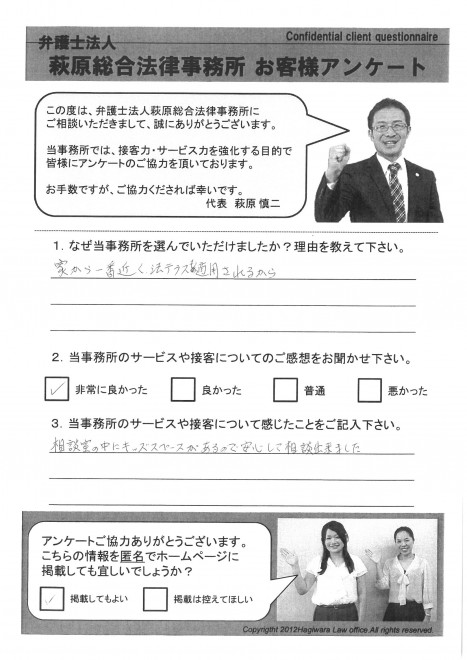 Confidential client questionnaire
弁護士法人
萩原総合法律事務所 お客様アンケート
この度は、弁護士法人萩原総合法律事務所に
ご相談いただきまして、誠にありがとうございます。
当事務所では、接客力・サービス力を強化する目的で
皆様にアンケートのご協力を頂いております。
お手数ですが、ご協力くだされば幸いです。
代表 萩原 慎二
1. なぜ当事務所を選んでいただけましたか?理由を教えて下さい。
家から一番近く法テラスも適用されるから
2. 当事務所のサービスや接客についてのご感想をお聞かせ下さい。
✓ 非常に良かった 良かった 普通 悪かった
3. 当事務所のサービスや接客について感じたことをご記入下さい。
相談室の中にキッズスペースがあるので安心して相談出来ました
アンケートご協力ありがとうございます。
こちらの情報を匿名でホームページに
掲載しても宜しいでしょうか?
✓ 掲載してもよい 掲載は控えてほしい
Copyright 2012Hagiwara Law office.All rights reserved.